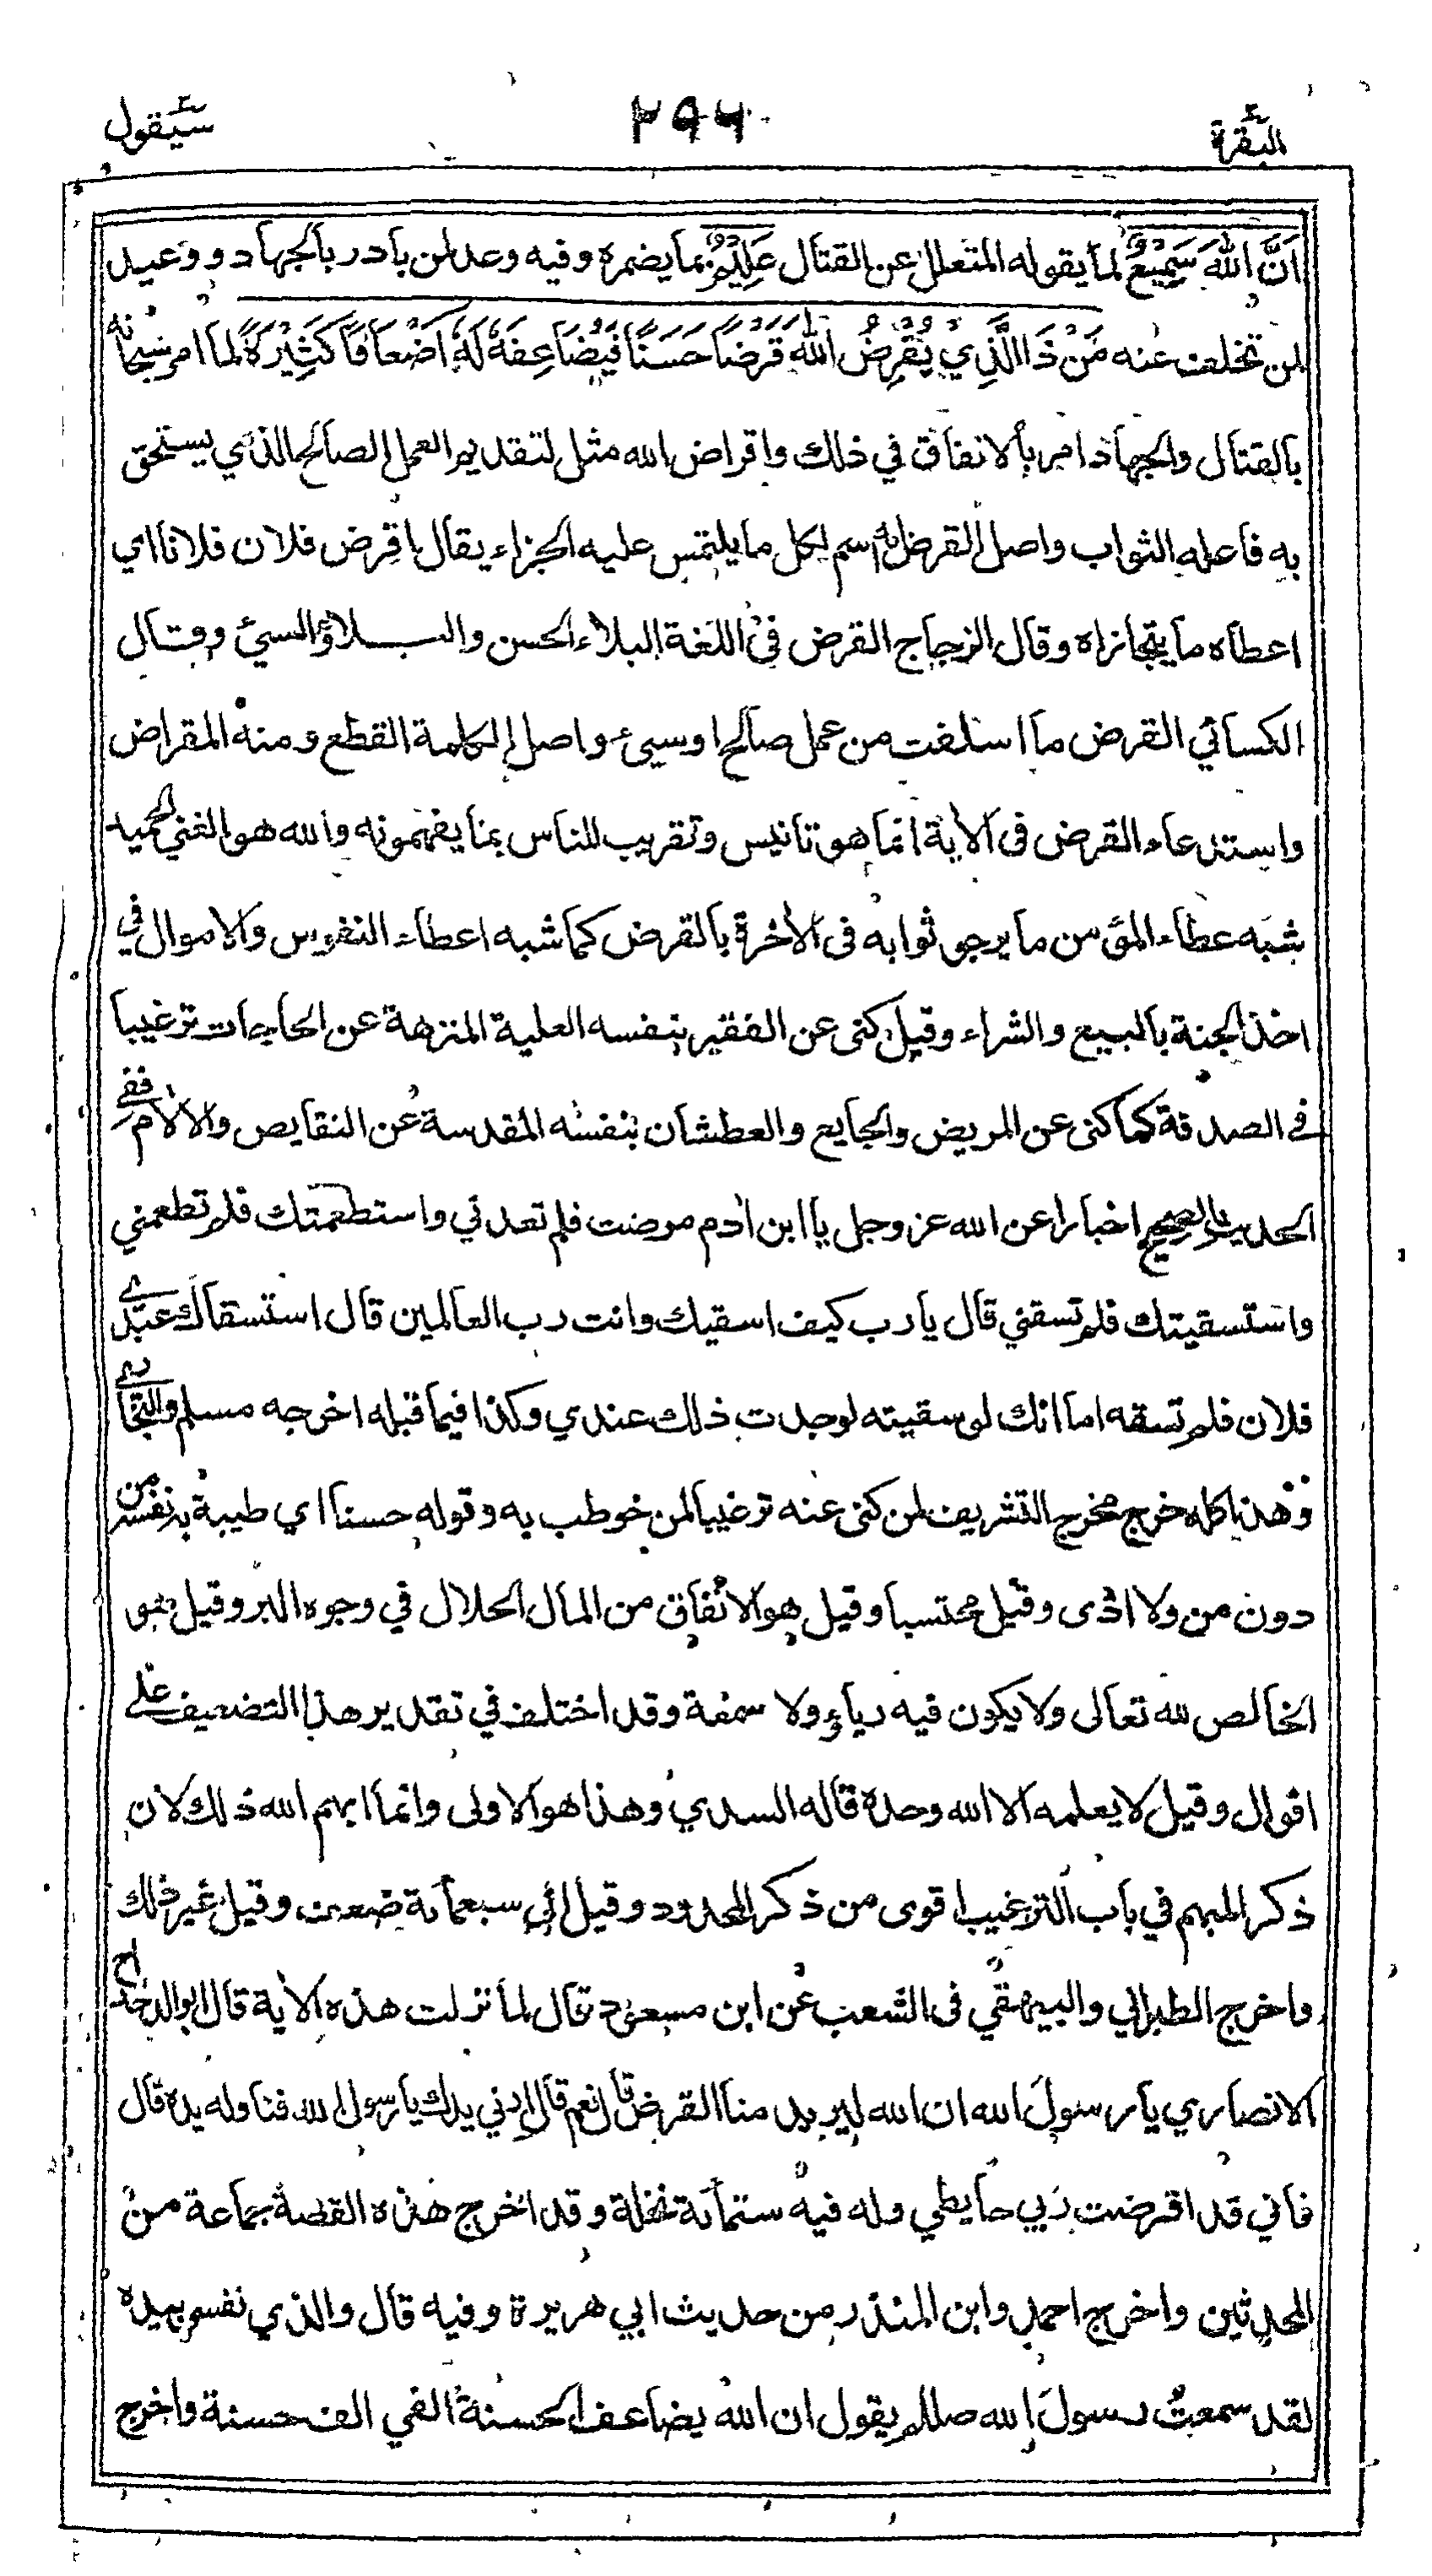 البقرة
٢٩٦
سيقول
اَنَّ اللّٰهَ سَمِيْعٌ لما يقوله المتعلل عن القتال عَلِيْمٌ بما يضمره وفيه وعد لمن بادر بالجهاد ووعيد
لمن تخلف عنه مَنْ ذَا الَّذِي يُقْرِضُ اللّٰهَ قَرْضًا حَسَنًا فَيُضَاعِفَهٗ لَهٗ اَضْعَافًا كَثِيْرَةً لما امر سبحانه
بالقتال والجهاد امر بالانفاق في ذلك واقراض الله مثل لتقديم العمل الصالح الذي يستحق
به فاعله الثواب واصل القرض انه اسم لكل ما يلتمس عليه الجزاء يقال اقرض فلان فلانا اي
اعطاه ما يتجازاه وقال الزجاج القرض في اللغة البلاء الحسن والبلاؤ السيئ وقال
الكسائي القرض ما اسلفت من عمل صالح اوسيئ واصل الكلمة القطع ومنه المقراض
واستدعاء القرض فى الاية انما هو تانيس وتقريب للناس بما يفهمونه والله هو الغني الحميد
شبه عطاء المؤمن ما يرجو ثوابه فى الاخرة بالقرض كما شبه اعطاء النفوس والاموال في
اخذ الجنة بالبيع والشراء وقيل كنى عن الفقير بنفسه العلية المنزهة عن الحاجات ترغيبا
في الصدقة كما كنى عن المريض والجايع والعطشان بنفسه المقدسة عن النقايص والالام ففي
الحديث الصحيح اخبارا عن الله عز وجل يا ابن ادم مرضت فلم تعدني واستطعمتك فلم تطعمني
واستسقيتك فلم تسقني قال يا رب كيف اسقيك وانت رب العالمين قال استسقاك عبدي
فلان فلم تسقه اما انك لو سقيته لوجدت ذلك عندي وكذا فيما قبله اخرجه مسلم والبخاري
وهذا كله خرج مخرج التشريف لمن كنى عنه ترغيبا لمن خوطب به وقوله حسنا اي طيبة به نفسه من
دون من ولا اذى وقيل محتسبا وقيل هو الانفاق من المال الحلال في وجوه البر وقيل هو
الخالص لله تعالى ولا يكون فيه رياء ولا سمعة وقد اختلف في تقدير هذا التضعيف على
اقوال وقيل لا يعلمه الا الله وحده قاله السدي وهذا هو الاولى وانما ابهم الله ذلك لان
ذكر المبهم في باب الترغيب اقوى من ذكر المحدود وقيل الى سبعمائة ضعف وقيل غير ذلك
واخرج الطبراني والبيهقي فى الشعب عن ابن مسعود قال لما نزلت هذه الاية قال ابو الدحداح
الانصاري يا رسول الله ان الله ليريد منا القرض قال نعم قال ادني يدك يا رسول الله فناوله يده قال
فاني قد اقرضت ربي حايطي وله فيه ستمائة نخلة وقد اخرج هذه القصة جماعة من
المحدثين واخرج احمد وابن المنذر من حديث ابي هريرة وفيه قال والذي نفسي بيده
لقد سمعت رسول الله صللم يقول ان الله يضاعف الحسنة الفي الف حسنة واخرج